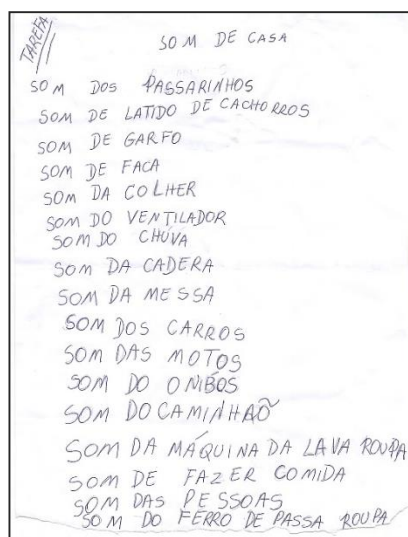 TAREFA
SOM DE CASA
SOM DOS PASSARINHOS
SOM DE LATIDO DE CACHORROS
SOM DE GARFO
SOM DE FACA
SOM DA COLHER
SOM DO VENTILADOR
SOM DO CHÚVA
SOM DA CADERA
SOM DA MESSA
SOM DOS CARROS
SOM DAS MOTOS
SOM DO ONIBOS
SOM DO CAMINHAÕ
SOM DA MÁQUINA DA LAVA ROUPA
SOM DE FAZER COMIDA
SOM DAS PESSOAS
SOM DO FERRO DE PASSA ROUPA